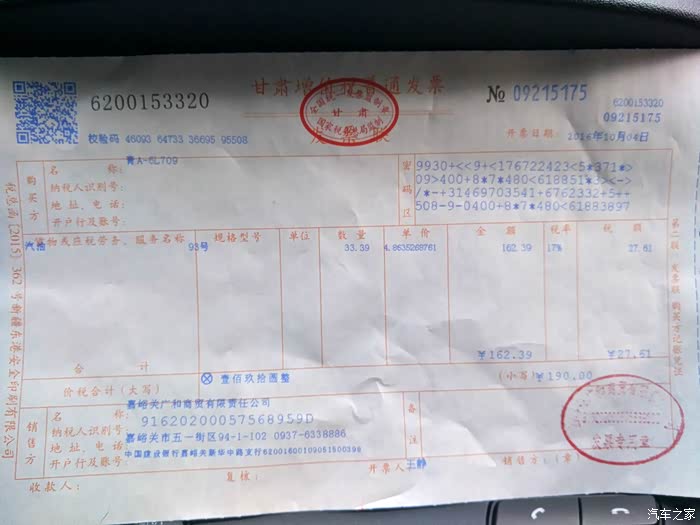 甘肃增值税普通发票
6200153320
№ 09215175
6200153320
09215175
全国统一发票监制章
甘肃
国家税务总局监制
校验码 46093 64733 36695 95508
开票日期: 2016年10月04日
购买方
名 称: 青A-6L709
纳税人识别号:
地址、电话:
开户行及账号:
密码区
9930+<<9+<176722423<5*371*>
09>400+8*7*480<618851*3><->
/*-+31469703541+6762332+5++
508-9-0400+8*7*480<61883897
货物或应税劳务、服务名称 规格型号 单位 数量 单价 金额 税率 税额
汽油 93号 33.39 4.8635268761 162.39 17% 27.61
合 计 ¥162.39 ¥27.61
价税合计(大写) ⊗ 壹佰玖拾圆整 (小写) ¥190.00
销售方
名 称: 嘉峪关广和商贸有限责任公司
纳税人识别号: 91620200057568959D
地址、电话: 嘉峪关市五一街区94-1-102 0937-6338886
开户行及账号: 中国建设银行嘉峪关新华中路支行62001600109051500398
备注
收款人: 复核: 开票人: 王静 销售方: (章)
发票专用章
税总函〔2015〕362号新疆东港安全印刷有限公司
第二联 发票联 购买方记账凭证
汽车之家